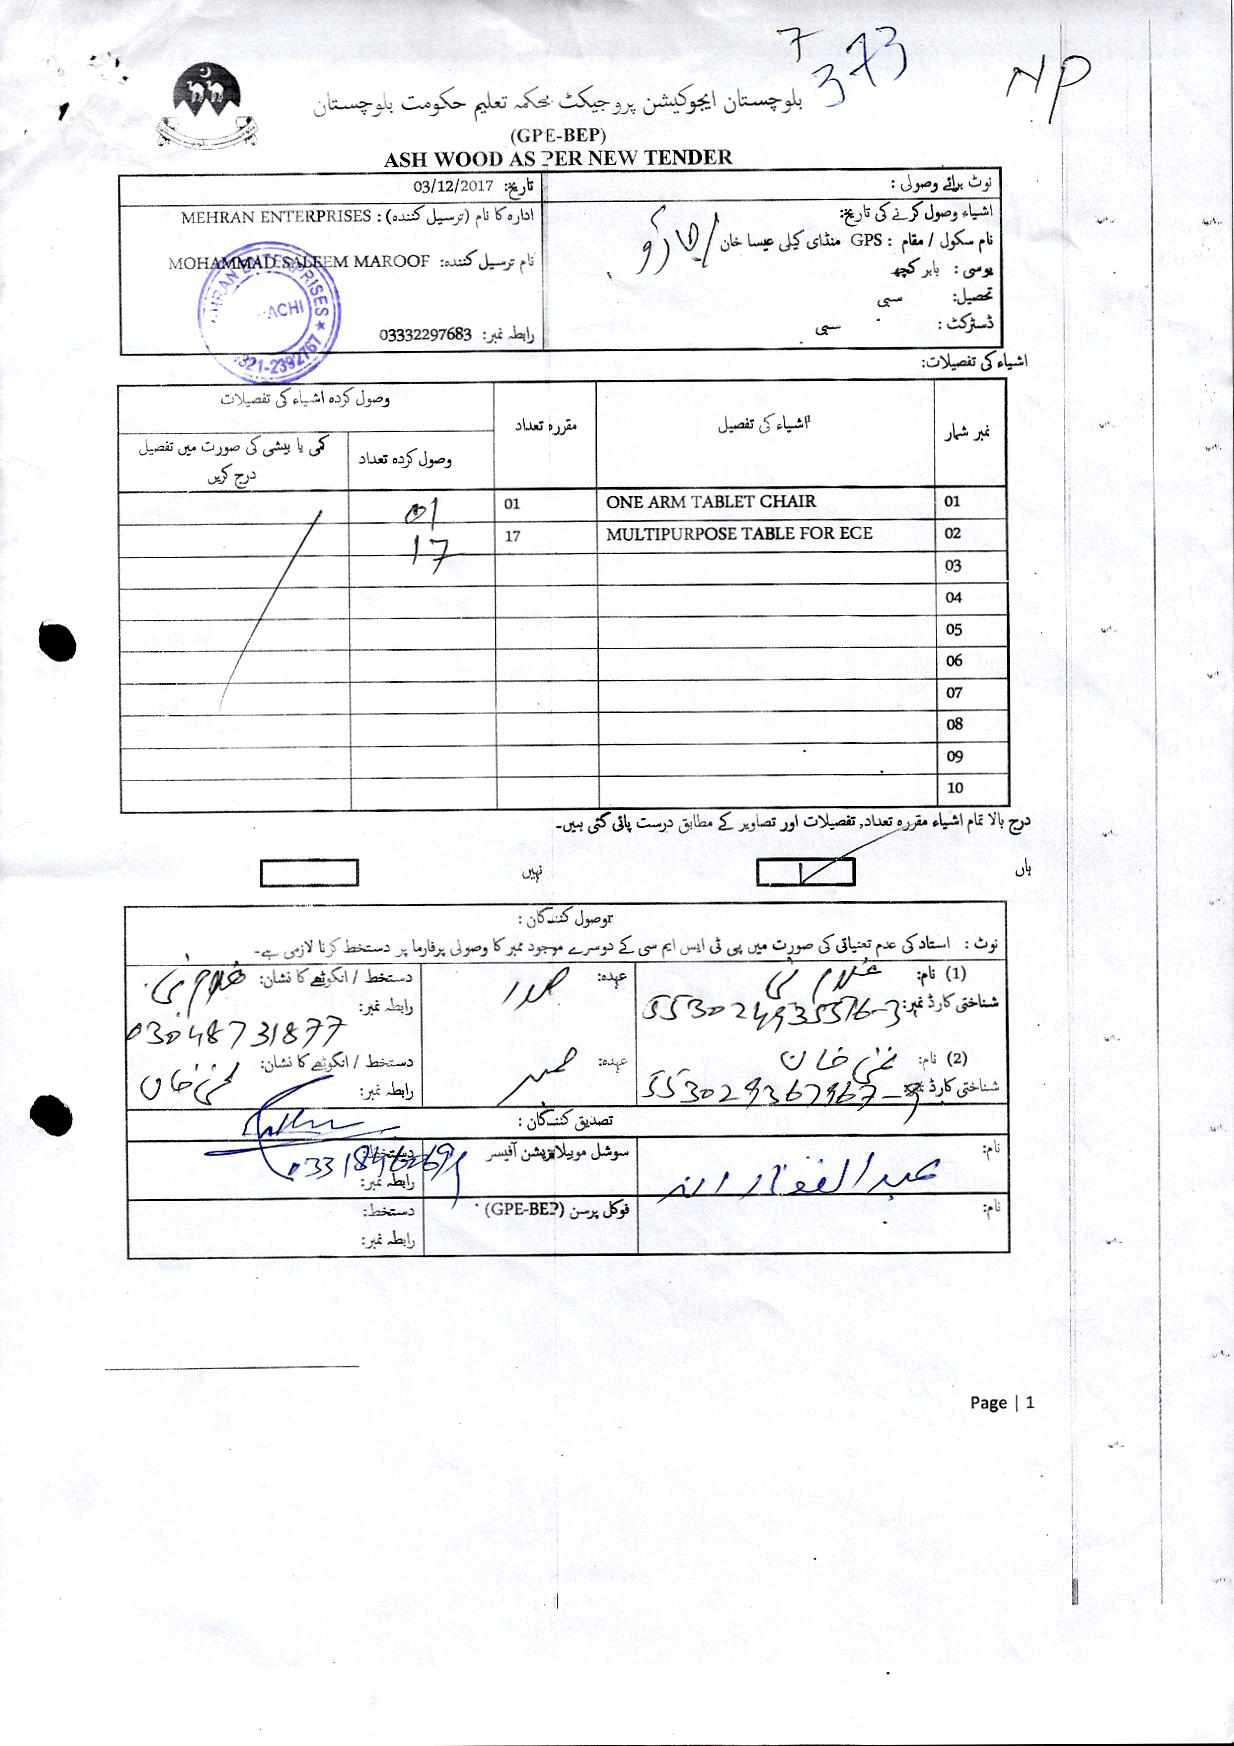 7 373
NP
بلوچستان ایجوکیشن پروجیکٹ محکمہ تعلیم حکومت بلوچستان
(GPE-BEP)
ASH WOOD AS PER NEW TENDER
نوٹ برائے وصولی :
اشیاء وصول کرنے کی تاریخ:
نام سکول / مقام : GPS منڈای کیلی عیسا خان
یوسی : بابر کچھ
تحصیل: سبی
ڈسٹرکٹ : سبی
تاریخ: 03/12/2017
ادارہ کا نام (ترسیل کنندہ) : MEHRAN ENTERPRISES
نام ترسیل کنندہ: MOHAMMAD SALEEM MAROOF
رابطہ نمبر: 03332297683
MEHRAN ENTERPRISES
KARACHI
0321-2392767
اشیاء کی تفصیلات:
نمبر شمار اشیاء کی تفصیل مقررہ تعداد وصول کردہ اشیاء کی تفصیلات
وصول کردہ تعداد کمی یا بیشی کی صورت میں تفصیل درج کریں
01 ONE ARM TABLET CHAIR 01 01
02 MULTIPURPOSE TABLE FOR ECE 17 17
03
04
05
06
07
08
09
10
درج بالا تمام اشیاء مقررہ تعداد, تفصیلات اور تصاویر کے مطابق درست پائی گئی ہیں۔
ہاں نہیں
وصول کنندگان :
نوٹ : استاد کی عدم تعیناتی کی صورت میں پی ٹی ایس ایم سی کے دوسرے موجود ممبر کا وصولی پرفارما پر دستخط کرنا لازمی ہے۔
(1) نام: عہدہ: صدر دستخط / انگوٹھے کا نشان:
شناختی کارڈ نمبر: رابطہ نمبر:
03048731877
(2) نام: غنی خان عہدہ: ممبر دستخط / انگوٹھے کا نشان: غنی خان
شناختی کارڈ نمبر: رابطہ نمبر:
تصدیق کنندگان :
نام: عبدالغفار سوشل موبیلائزیشن آفیسر دستخط:
رابطہ نمبر:
نام: فوکل پرسن (GPE-BEP) دستخط:
رابطہ نمبر:
Page | 1